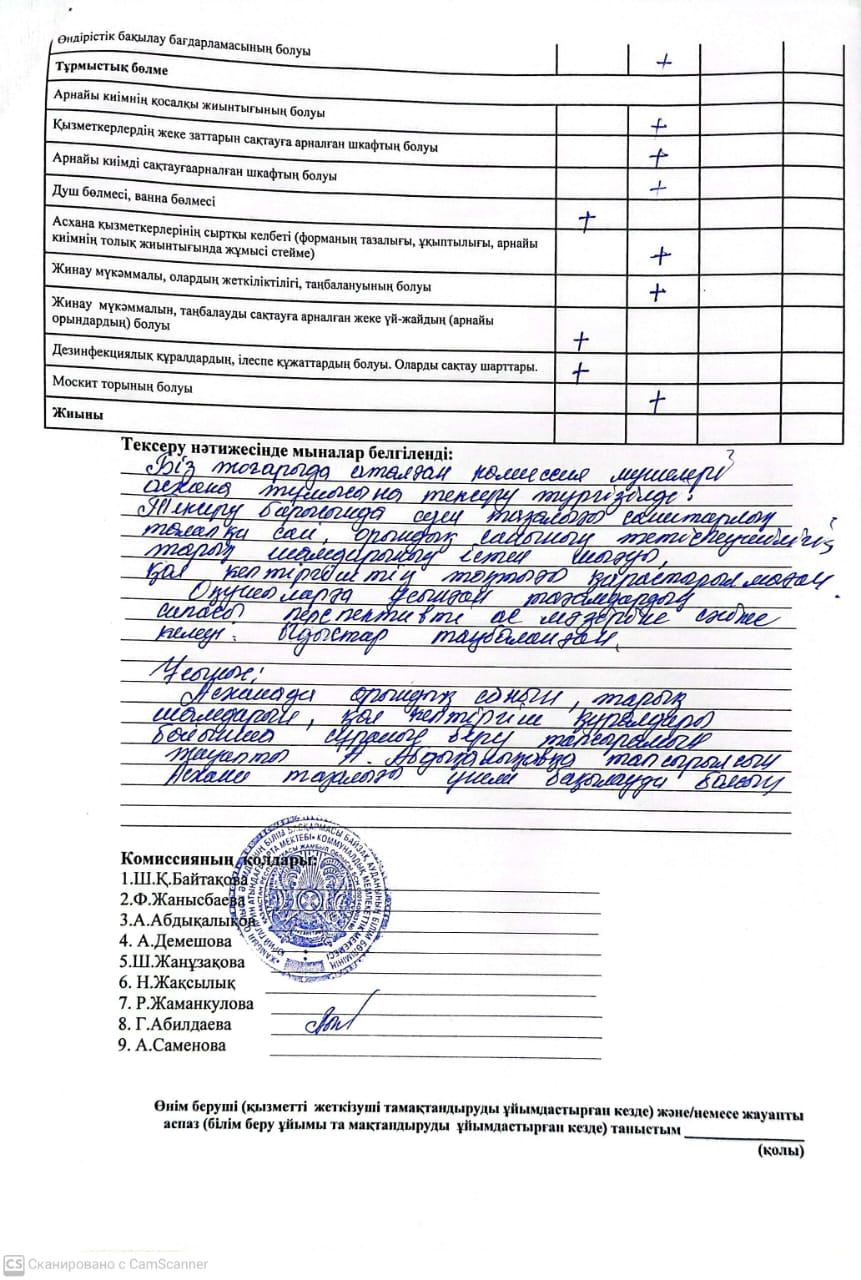 Өндірістік бақылау бағдарламасының болуы +
Тұрмыстық бөлме
Арнайы киімнің қосалқы жиынтығының болуы +
Қызметкерлердің жеке заттарын сақтауға арналған шкафтың болуы +
Арнайы киімді сақтауғаарналған шкафтың болуы +
Душ бөлмесі, ванна бөлмесі +
Асхана қызметкерлерінің сыртқы келбеті (форманың тазалығы, ұқыптылығы, арнайы
киімнің толық жиынтығында жұмысі стейме) +
Жинау мүкәммалы, олардың жеткіліктілігі, таңбалануының болуы +
Жинау мүкәммалын, таңбалауды сақтауға арналған жеке үй-жайдың (арнайы
орындардың) болуы +
Дезинфекциялық құралдардың, ілеспе құжаттардың болуы. Оларды сақтау шарттары. +
Москит торының болуы +
Жиыны
Тексеру нәтижесінде мыналар белгіленді:
Біз жоғарыда аталған комиссия мүшелері
асхана жұмысына тексеру жүргізілді.
Тексеру барысында тазалығы санитарлық
талапқа сай, орындық санының жетіспеушілігі,
жарық шамдарының істен шығуы,
қол кептіргіштің қарастырылмаған.
Оқушыларға ұсынған тағамдардың
сапасы перспективті ас мәзіріне сәйкес
келеді. Ыдыстар таңбаланған.
Ұсыныс:
Асханада орындық санын, жарық
шамдарын, қол кептіргіш құралдары
бойынша сұраныс беру тапсырмасы
жауапты А. Абдықалықовқа тапсырылсын
Асхана тазалығы үнемі бақылауда болсын
Комиссияның қолдары:
1.Ш.Қ.Байтақова
2.Ф.Жанысбаева
3.А.Абдықалықов
4. А.Демешова
5.Ш.Жанұзақова
6. Н.Жақсылық
7. Р.Жаманкулова
8. Г.Абилдаева
9. А.Саменова
Өнім беруші (қызметті жеткізуші тамақтандыруды ұйымдастырған кезде) және/немесе жауапты
аспаз (білім беру ұйымы та мақтандыруды ұйымдастырған кезде) таныстым
(қолы)
CS Сканировано с CamScanner